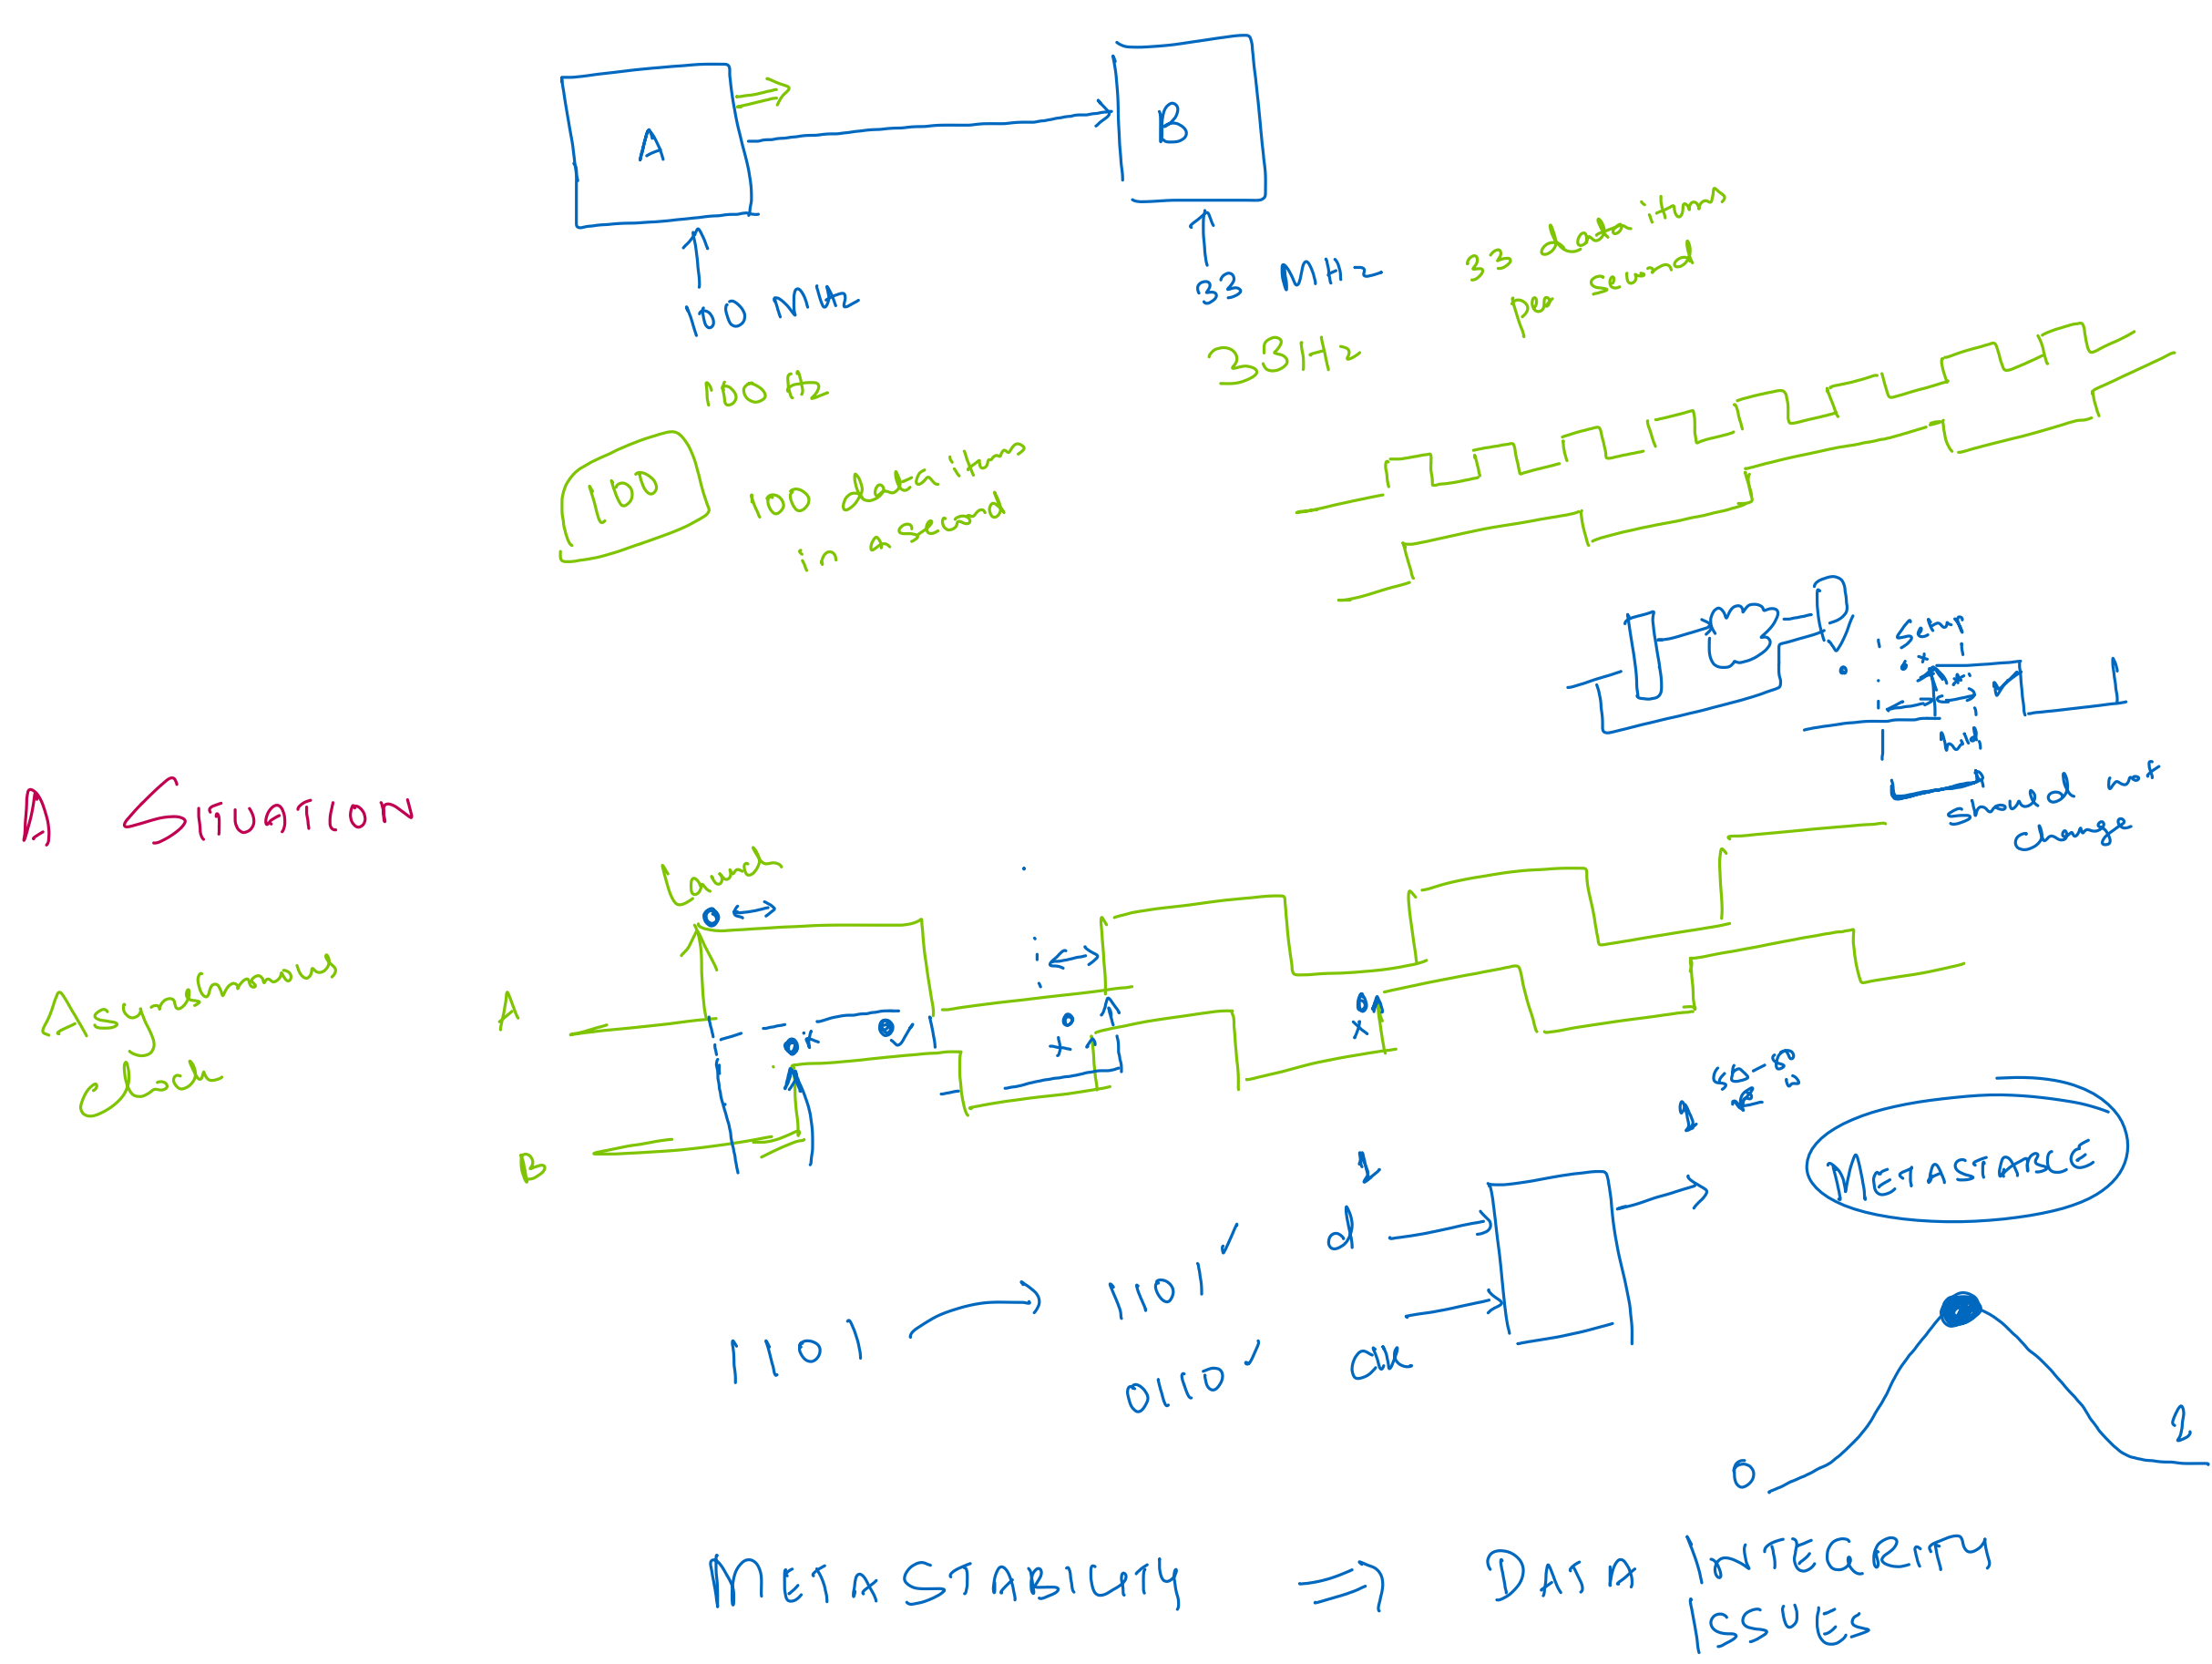 A
B
100 MHz
33 MHz
100 Hz
33Hz
33 data items
per second
100
100 data items
in a second
setup
hold
should not
change
A SITUATION
Launch
Asynchronous
clock
A
B
d
clk
1101
1101
0110
METASTABLE
0
1
METASTABILITY ⇒ DATA INTEGRITY
ISSUES